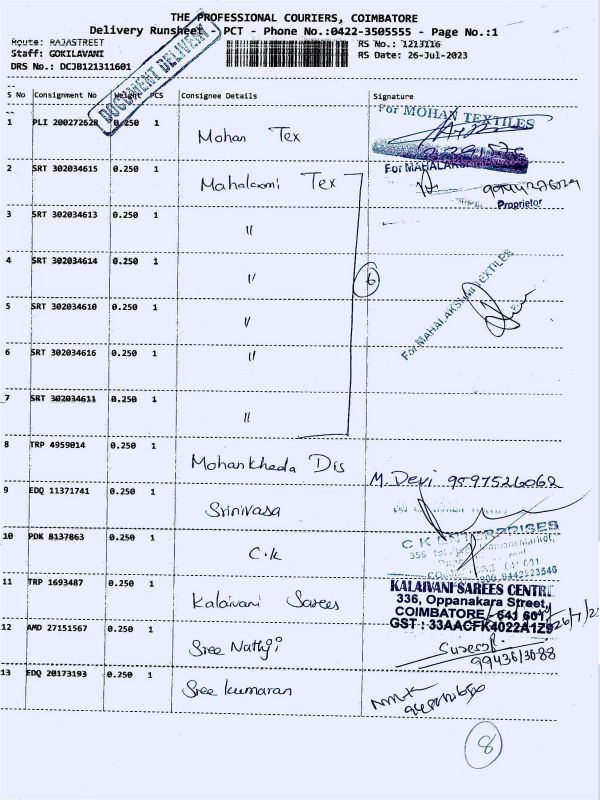 THE PROFESSIONAL COURIERS, COIMBATORE
Delivery Runsheet PCT - Phone No.:0422-3505555 - Page No.:1
Route: RAJASTREET RS No.: 1213116
Staff: GOKILAVANI RS Date: 26-Jul-2023
DRS No.: DCJB121311601
DOCUMENT DELIVERY
S No Consignment No Weight PCS Consignee Details Signature
1 PLI 200272628 0.250 1 Mohan Tex
For MOHAN TEXTILES
2 SRT 302034615 0.250 1 Mahalaxmi Tex
Proprietor
3 SRT 302034613 0.250 1 "
4 SRT 302034614 0.250 1 "
6
For MAHALAKSHMI TEXTILES
5 SRT 302034610 0.250 1 "
6 SRT 302034616 0.250 1 "
7 SRT 302034611 0.250 1 "
8 TRP 4959014 0.250 1 Mohankheda Dis M. Devi 9597526062
9 EDQ 11371741 0.250 1 Srinivasa
10 PDK 8137863 0.250 1 C.K
C K ENTERPRISES
11 TRP 1693487 0.250 1 Kalaivani Sarees
KALAIVANI SAREES CENTRE
336, Oppanakara Street,
COIMBATORE - 641 001.
GST : 33AACFK4022A1Z9
12 AMD 27151567 0.250 1 Sree Nathji
13 EDQ 20173193 0.250 1 Sree kumaran
8